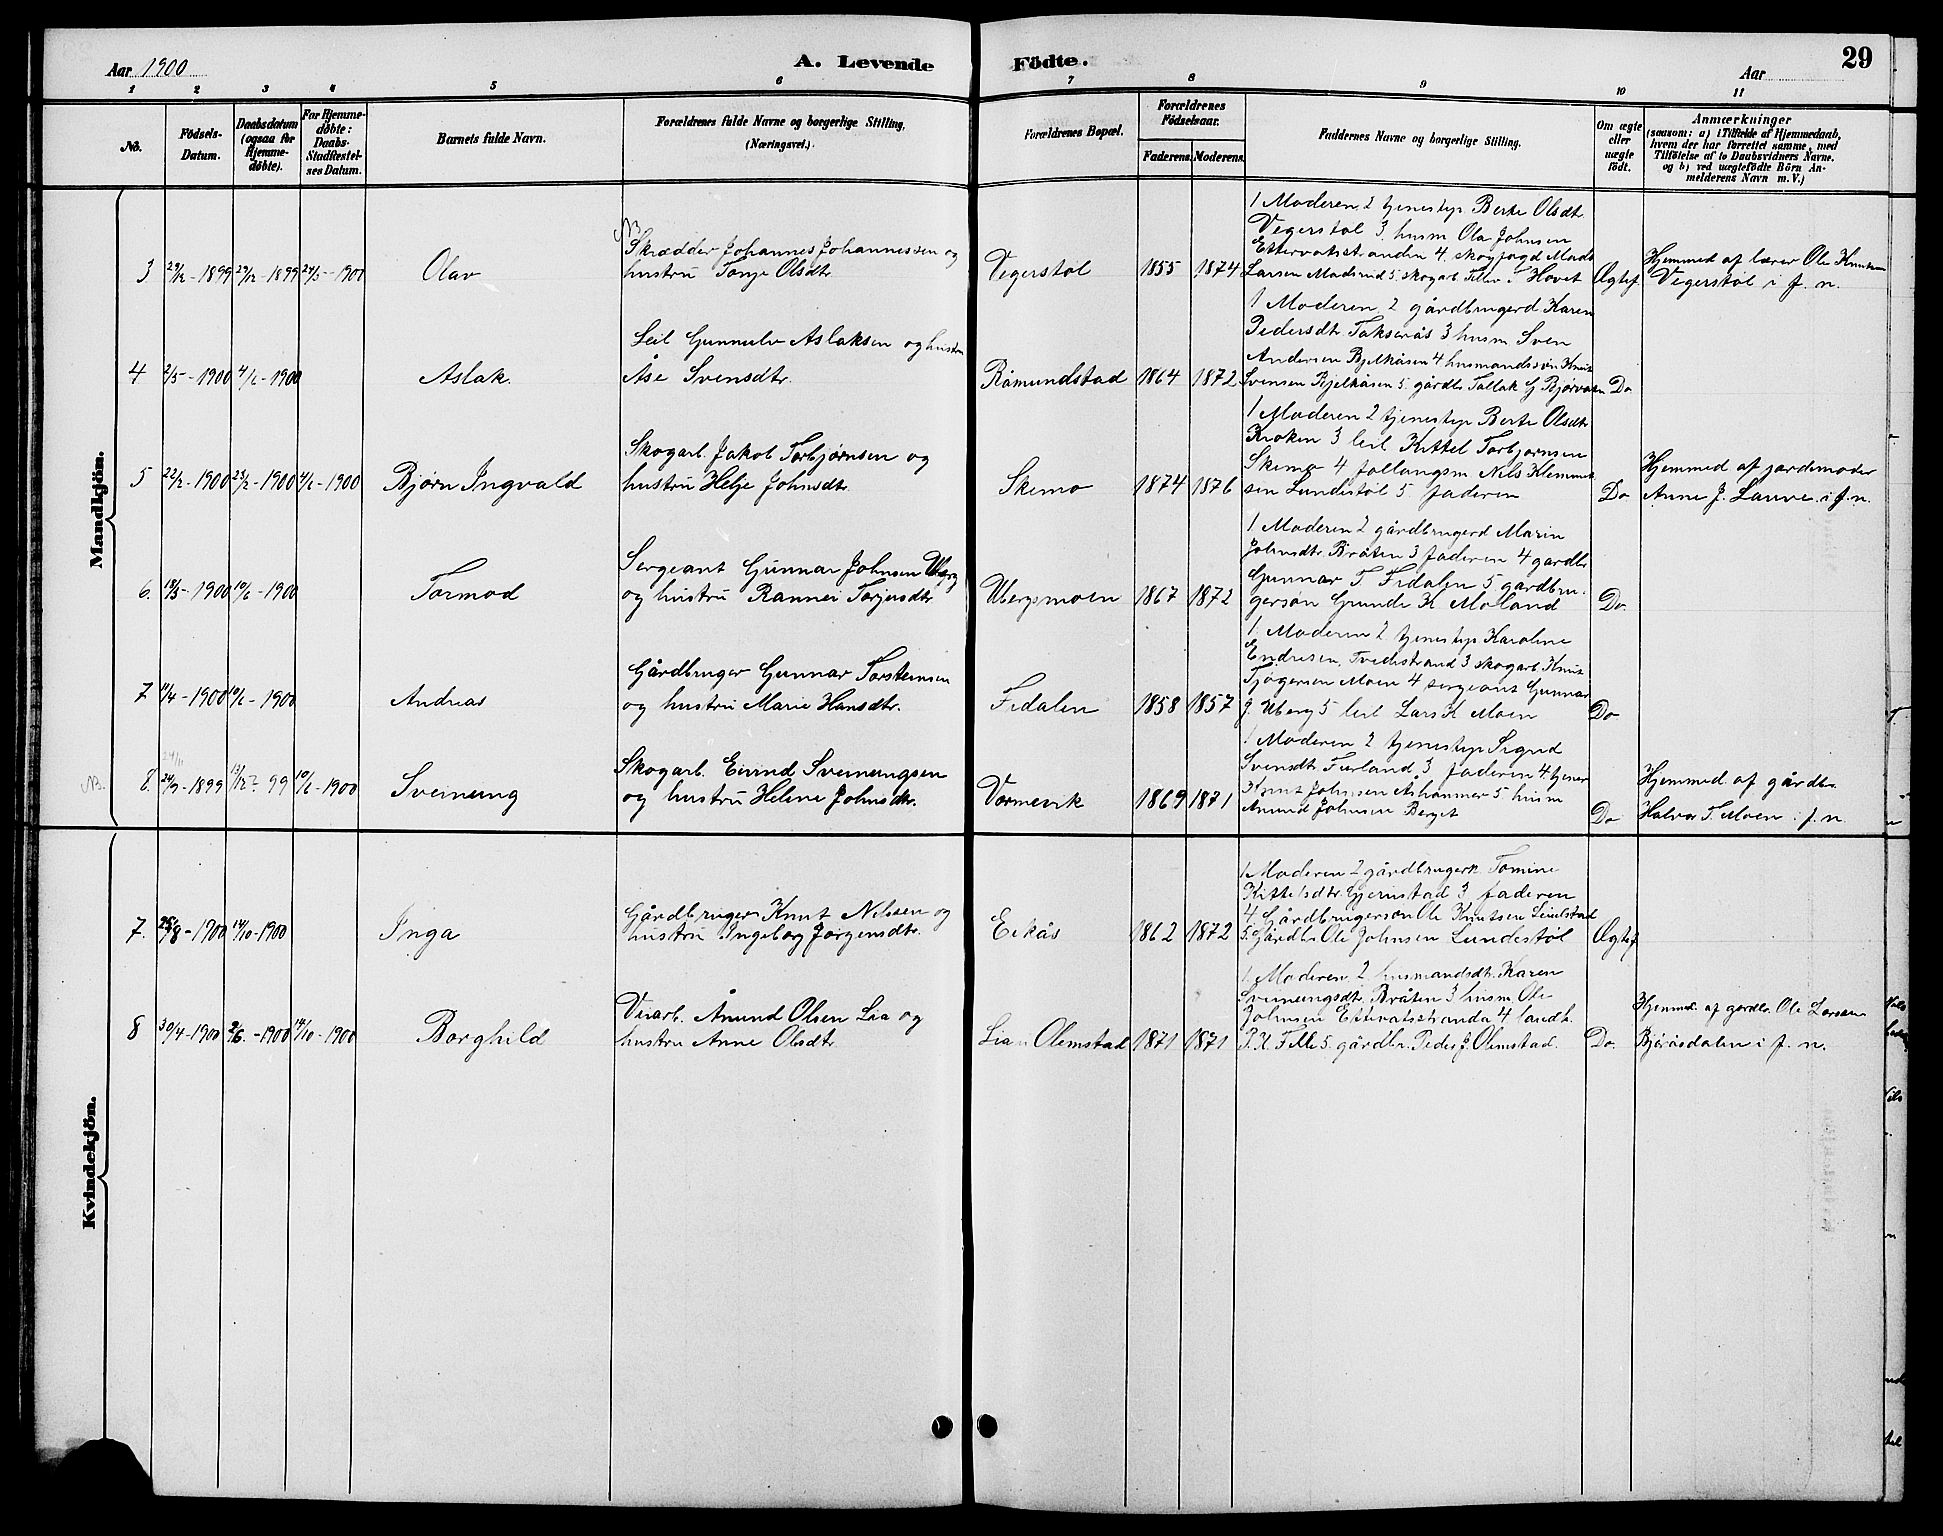 Aar 1900
A. Levende Födte.
Aar
29
1 2 3 4 5 6 7 8 9 10 11
No.
Födsels-Datum.
Daabsdatum (ogsaa for Hjemme-döbte).
For Hjemme-döbte: Daabs-Stadfæstel-ses Datum.
Barnets fulde Navn.
Forældrenes fulde Navne og borgerlige Stilling,
(Næringsvei.)
Forældrenes Bopæl.
Forældrenes Födselsaar.
Faderens. Moderens.
Faddernes Navne og borgerlige Stilling.
Om ægte eller uægte födt.
Anmærkninger
(saasom: a) i Tilfælde af Hjemmedaab,
hvem der har forrettet samme, med
Tilföielse af to Daabsvidners Navne.
og b) ved uægtefödte Börn An-
melderens Navn m. V.)
Mandkjön.
NB.
Skrædder Johannes Johannessen og
hustru Tonje Olsdtr
3 29/12-1899 29/12-1899 24/5-1900 Olav
Vegerstøl 1855 1874
1 Moderen 2 tjenestep Berte Olsdtr
Vegerstøl 3 husm Ola Johnsen
Ettervatsstranden 4. skogfogd Mads
Larsen 5. skogarb. i Hovet
Ægtef
Hjemmed af lærer Ole Knutsen
Vegerstøl i f. n.
4 2/5-1900 4/6-1900 Aslak.
Leil Gunnulv Aslaksen og hustru
Åse Svensdtr.
Råmundstad 1864 1872
1 Moderen 2 gårdbrugerd Karen
Pedersdtr Takserås 3 husm Sven
Andersen Bjelkåsen 4 husmandssøn Knut
Svensen Bjelkåsen 5. gårdbr Tallak G Bjørvatn
Do
5 22/2-1900 23/2-1900 4/6-1900 Bjørn Ingvald
Skogarb. Jakob Torbjørnsen og
hustru Helje Johnsdtr.
Skimo 1874 1876
1 Moderen 2 tjenestep Berte Olsdtr
Kroken 3 leil Kittel Torbjørnsen
Skimo 4 Nils Klemmet
sen Lundestøl 5 faderen
Do
Hjemmed af jordemoder
Anne J. Lauve i f. n.
6. 18/5-1900 10/6-1900 Tormod
Sergeant Gunnar Johnsen Uberg
og hustru Rannei Torjusdtr
Ubergsmoen 1867 1872
1 Moderen 2 gårdbrugerd Marin
Johnsdtr Bråten 3 faderen 4 gardbr
Gunnar T. Fidalen 5 gardbru-
gersøn Grunde K. Moland
Do.
7 11/4-1900 10/6-1900 Andreas
Gårdbruger Gunnar Torsteinsen
og hustru Marie Hansdtr.
Fidalen 1858 1857
1 Moderen 2 tjenestep Karoline
Endresen, Tvedestrand 3 skogarb Knut
Moen 4 sergeant Gunnar
J. Uberg 5 leil Lars K Moen
Do
24/11
NB. 8. 24/9-1899 13/12 99 10/6-1900 Sveinung
Skogarb. Eivind Sveinungsen
og hustru Helene Johnsdtr.
Vormevik 1869 1871
1 Moderen 2 tjenestep Sigrid
Svensdtr Furland 3 faderen 4 tjener
Knut Johnsen Åshammer 5 husm
Amund Johnsen Berget
Do
Hjemmed af gårdbr.
Halvor T. Moen i f. n.
Kvindekjön.
7. 25/8-1900 14/10-1900 Inga
Gårdbruger Knut Nilssen og
hustru Ingeborg Jørgensdtr.
Eikås 1862 1872
1 Moderen 2 gårdbrugerk Tomine
Kittelsdtr. Gjerustad 3 faderen
4 Gårdbrugersøn Ole Knutsen
5. Gårdbr Ole Johnsen Lundestøl
Ægtef
8 30/4-1900 2/6-1900 14/10-1900 Borghild
Veiarb. Ånund Olsen Lia og
hustru Anne Olsdtr.
Lia u Olimstad 1871 1871
1 Moderen 2 husmandsdtr. Karen
Sveinungsdtr. Bråten 3 husm Ole
Johnsen Ettevatsstranda 4 landh.
P. K. Felle 5. gårdbr. Peder J. Olimstad.
Do.
Hjemmd. af gårdbr. Ole Larsen
Bjøråsdalen i f. n.